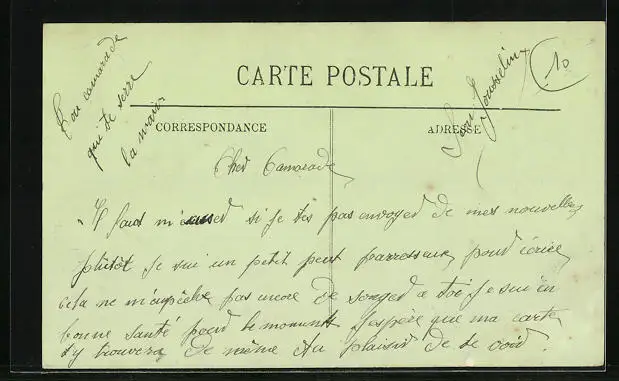 CARTE POSTALE
CORRESPONDANCE
ADRESSE
10
Cher Camarade
Il faut m'écuser si je tés pas envoyer de mes nouvelles
plutôt je sui un petit peut parresseux pour écrire
cela ne m'aupêche pas encore de songer a toi je sui en
bonne santé pour le moment J'espère que ma carte
t'y trouvera de même Au plaisir de te voir.
Ton camarade
qui te serre
la main
Jean Jousselin